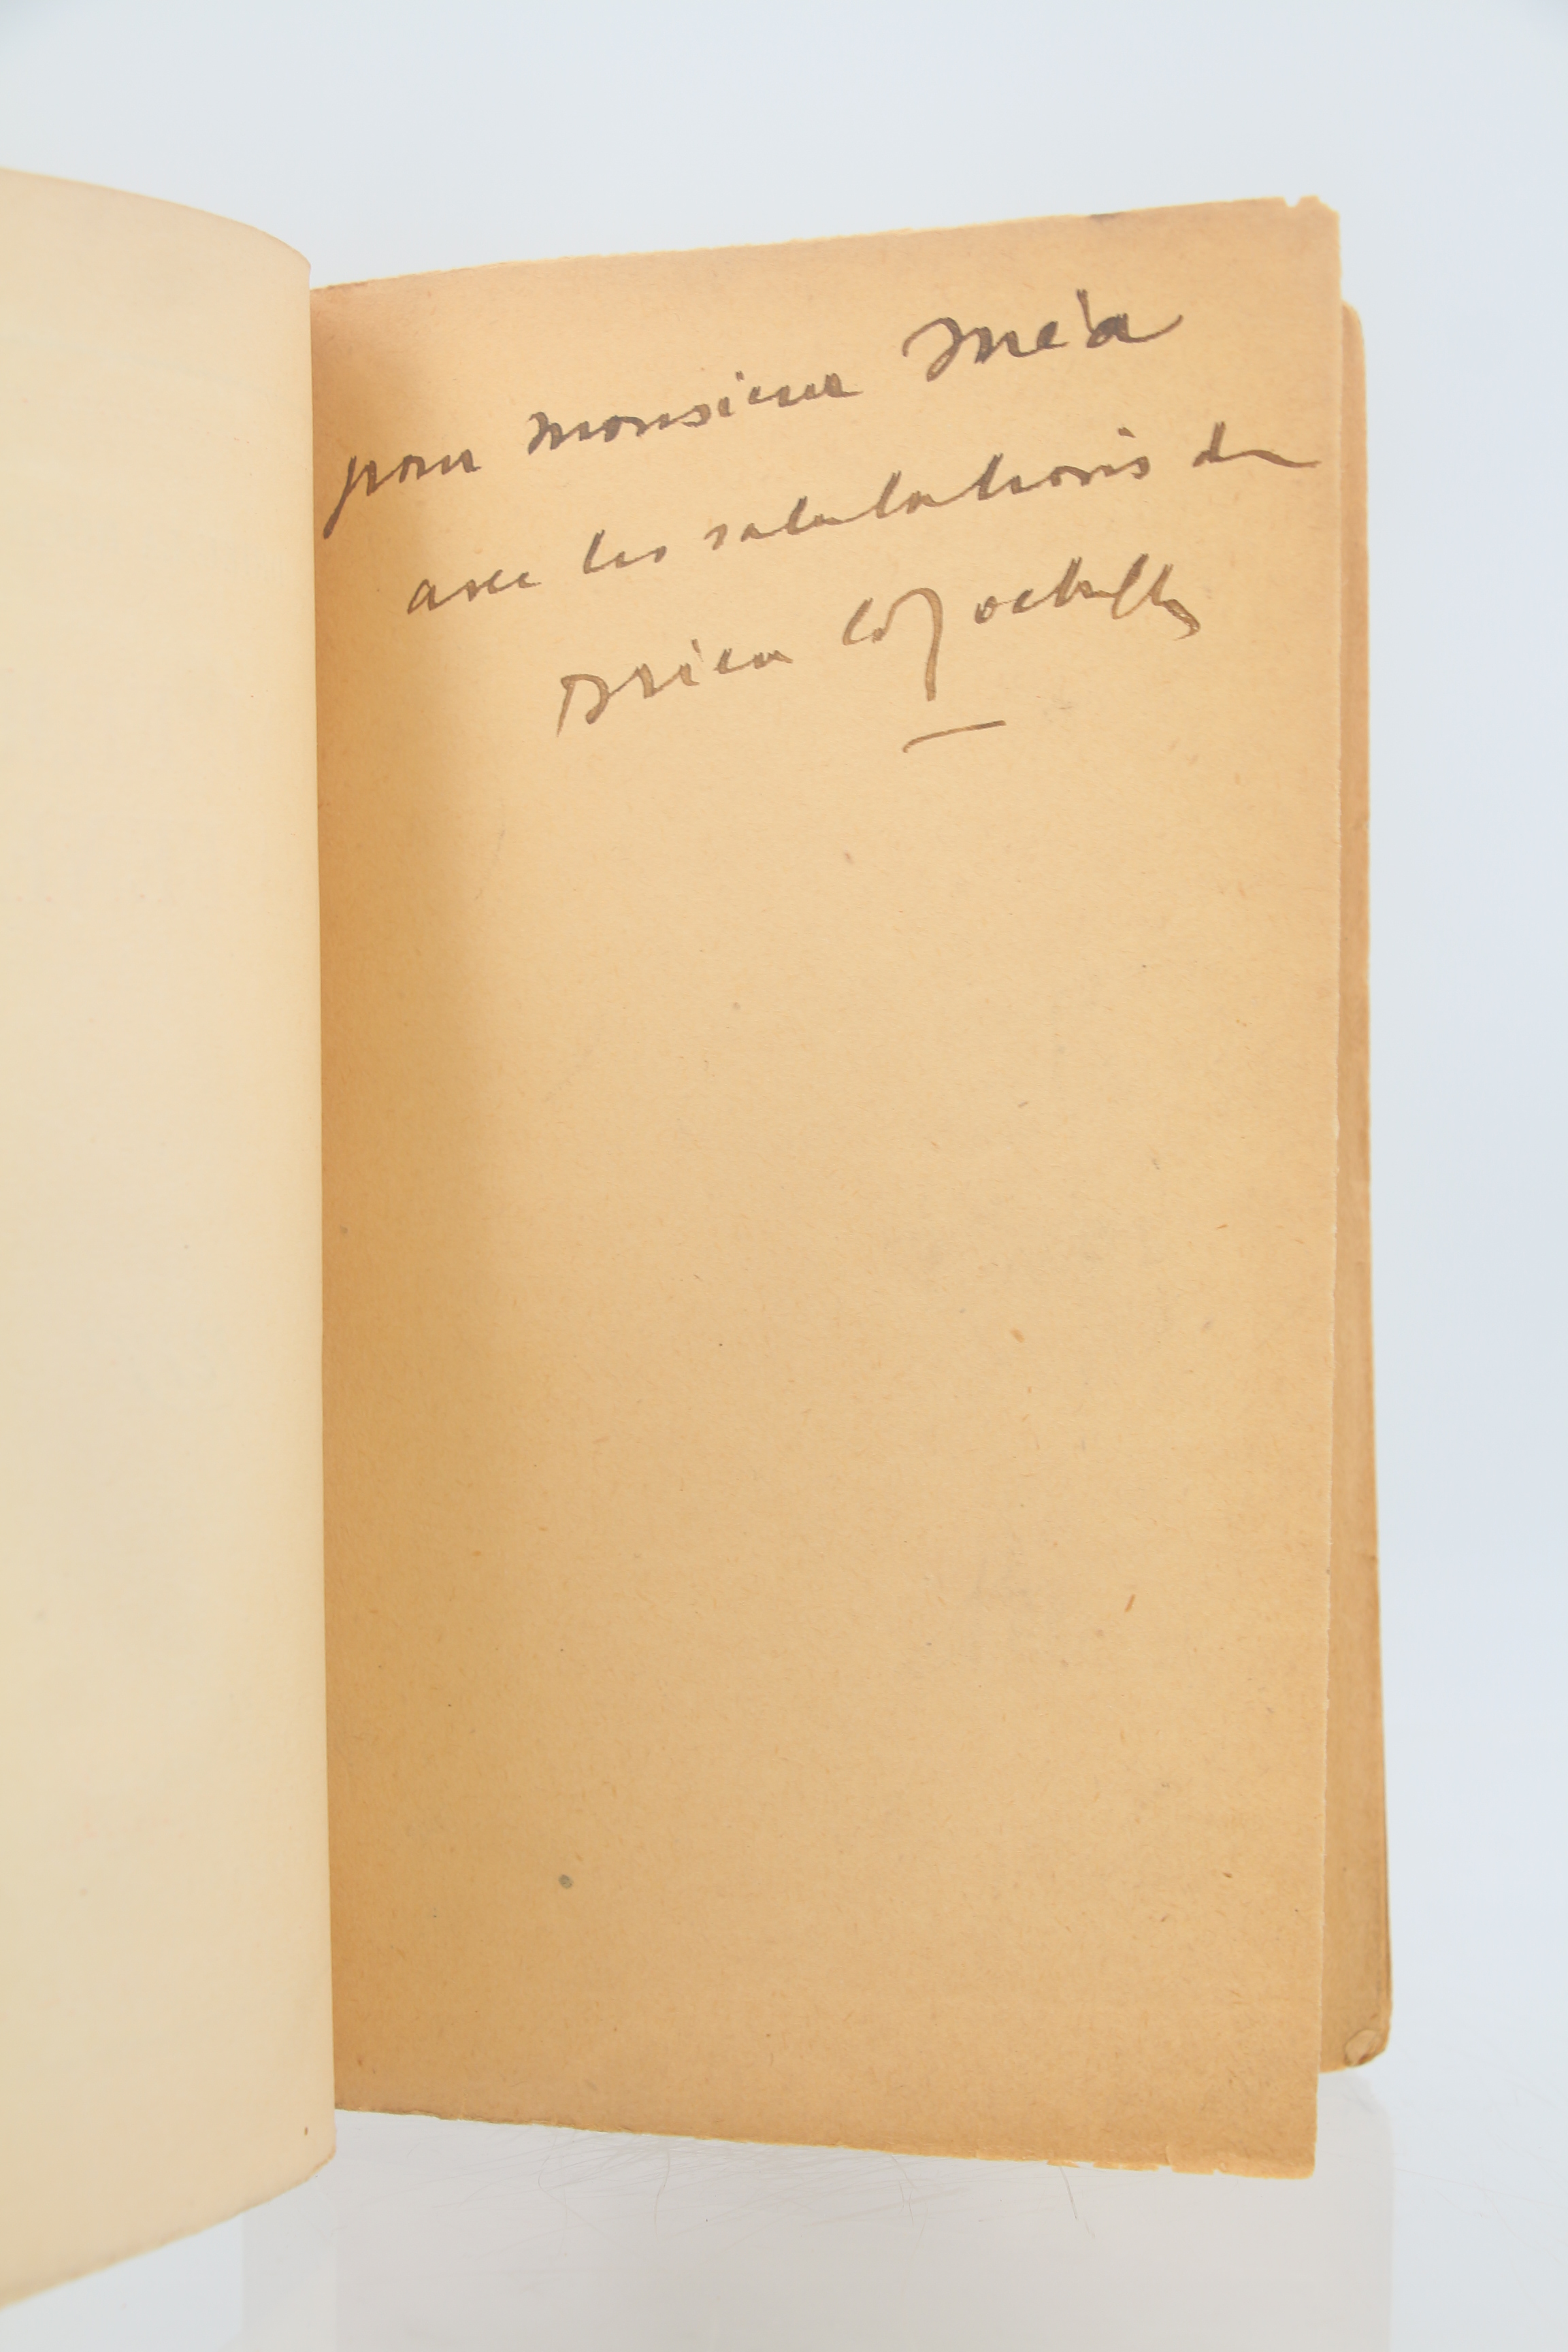 pour monsieur Méa
avec les salutations de
Drieu la Rochelle